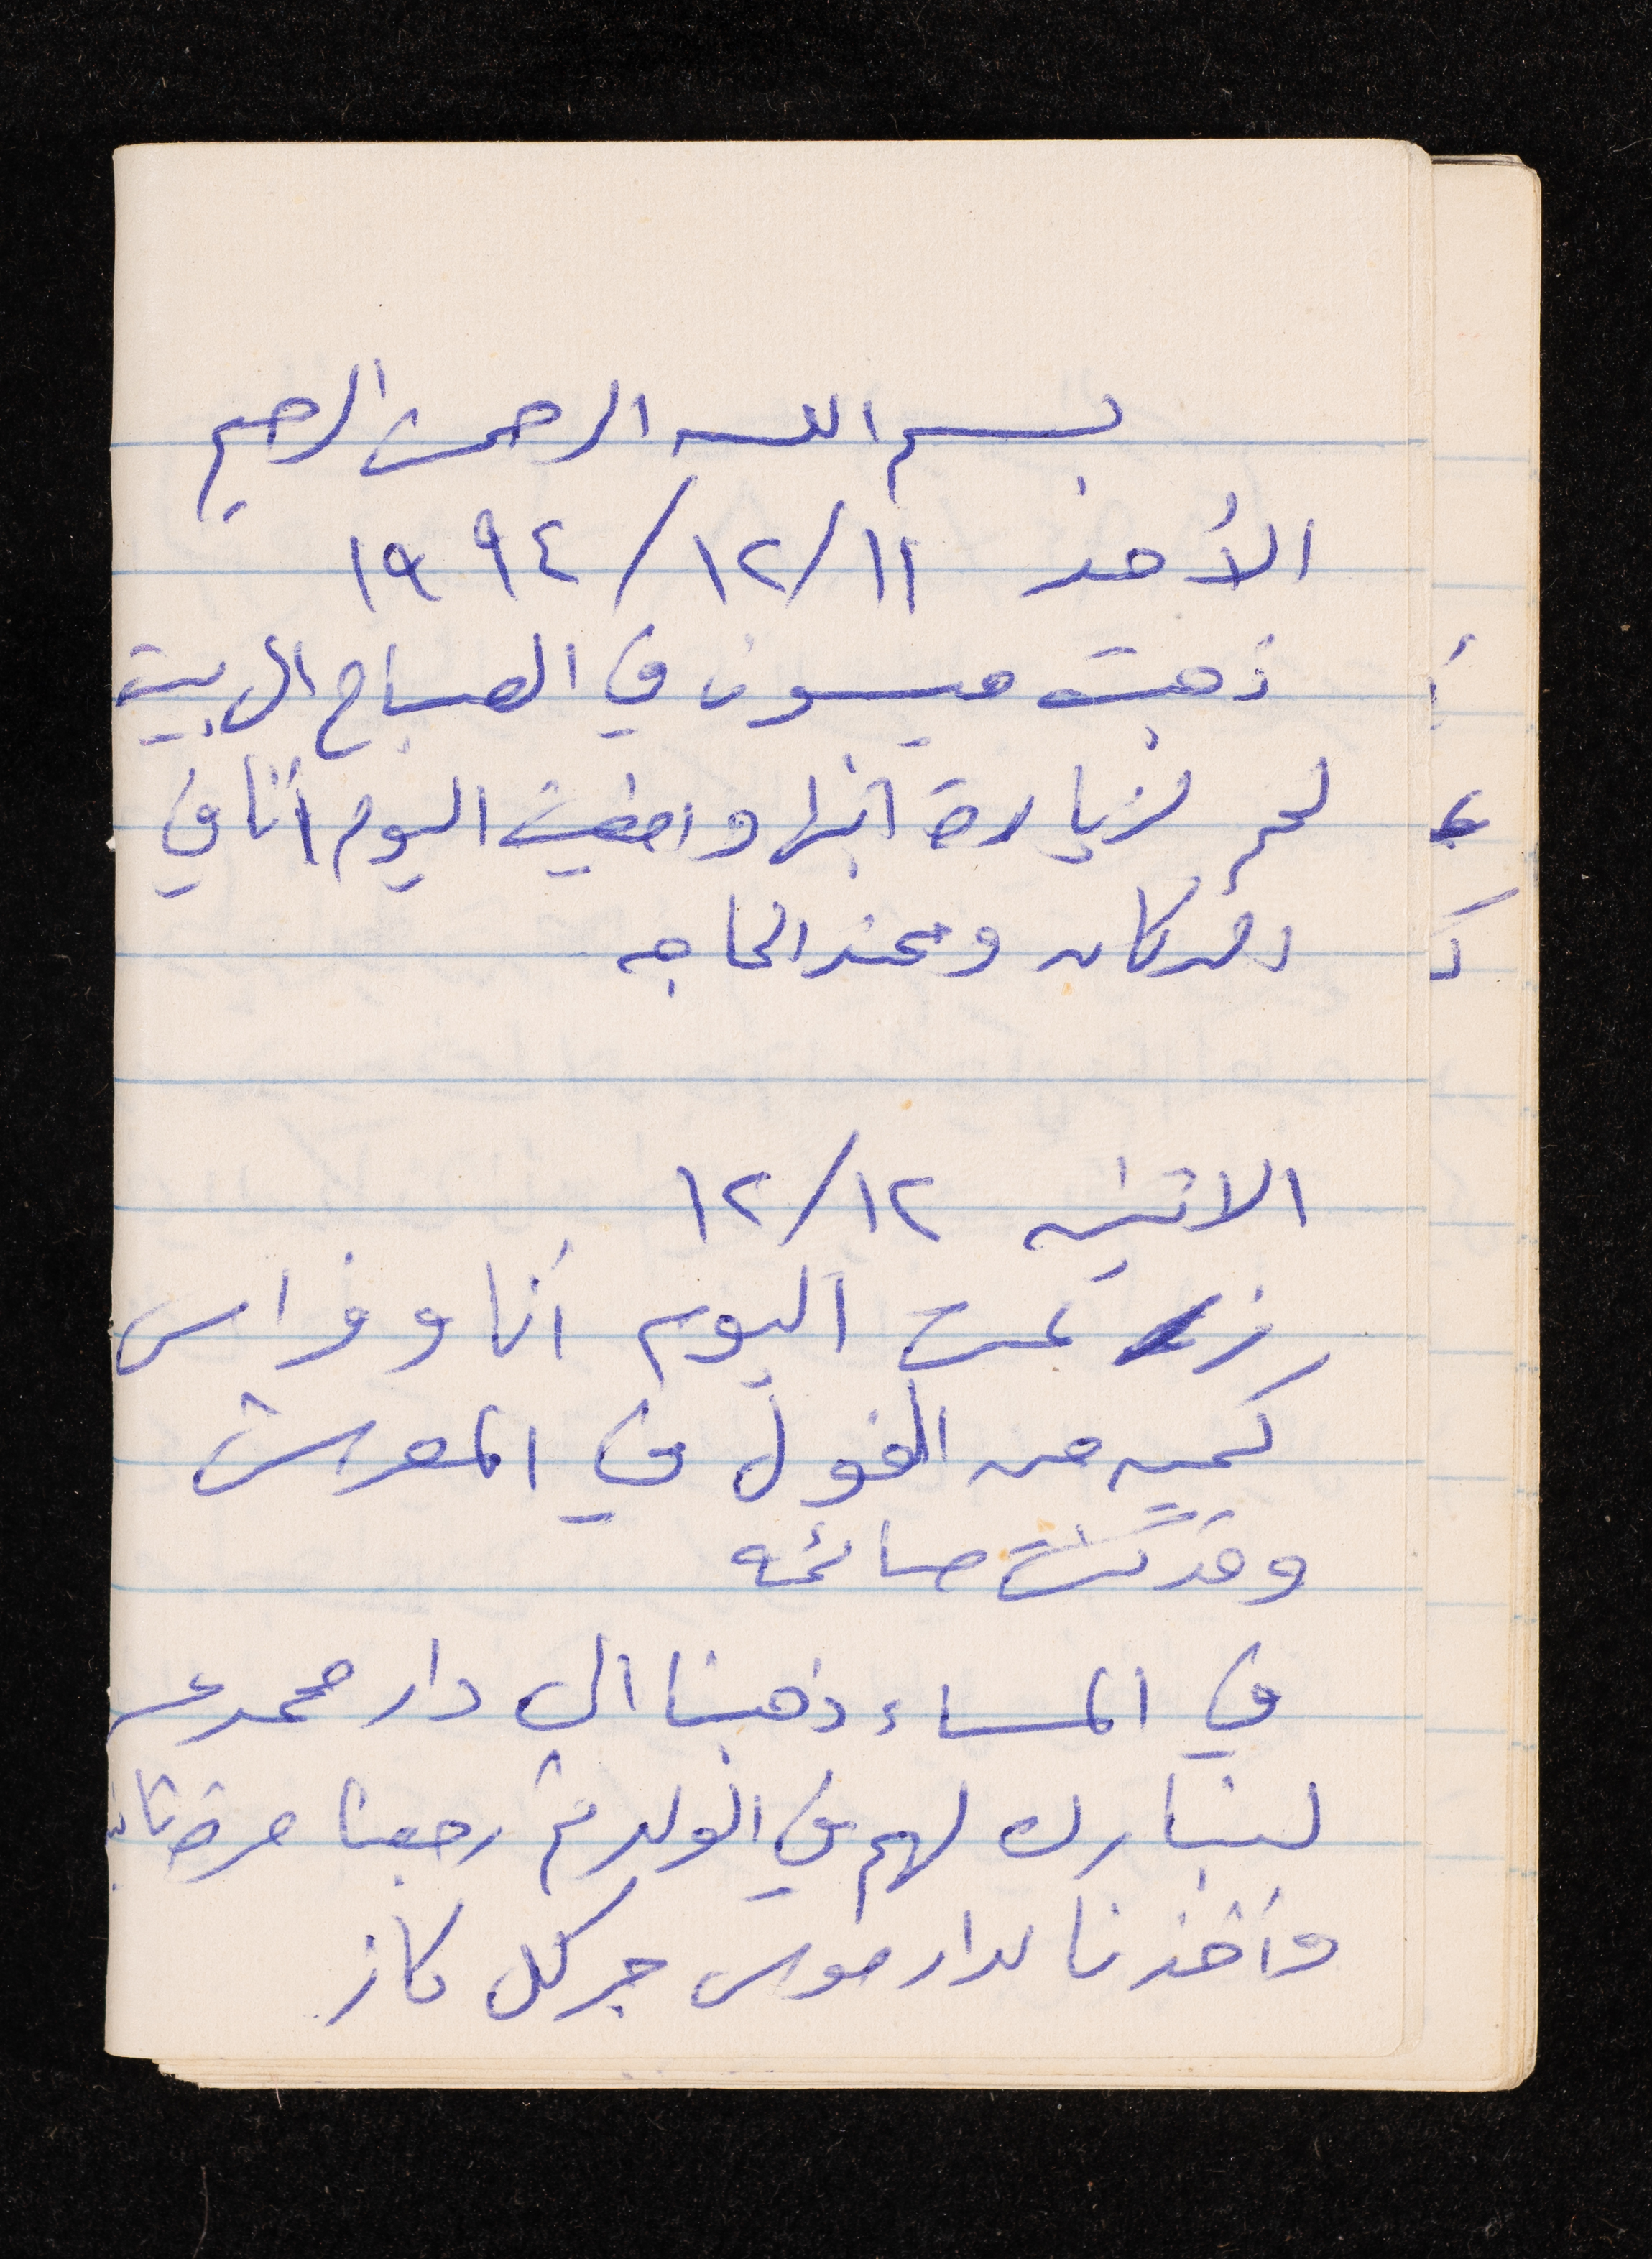 بسم الله الرحمن الرحيم
الأحد ١١/١٢/١٩٩٤
ذهبت ميسون في الصباح الى بيت
لحم لزيارة ابنها وامضيت اليوم أنا في
الدكان وعند الحاجه
الاثنين ١٢/١٢
زرعت اليوم أنا وفراس
كميه من الفول في المعرش
وقد كنت صائمه
في المساء ذهبنا الى دار محمد
لنبارك لهم في الولد ثم رجعنا مرة
وأخذنا لدار موسى جركل كاز